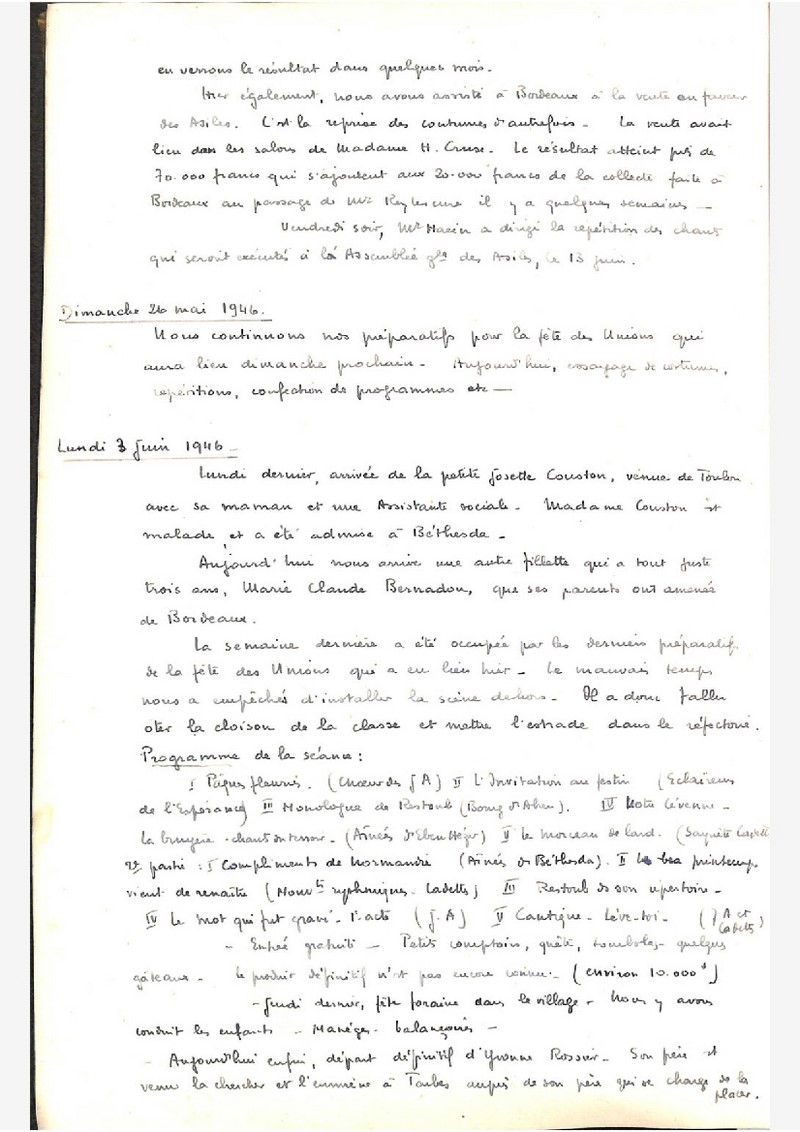 en verrons le résultat dans quelques mois.
Hier également, nous avons assisté à Bordeaux à la vente en faveur
des Asiles. C'est la reprise des coutumes d'autrefois - La vente avait
lieu dans les salons de Madame H. Cruse. Le résultat atteint près de
70.000 francs qui s'ajoutent aux 20.000 francs de la collecte faite à
Bordeaux au passage de il y a quelques semaines -
Vendredi soir, a dirigé la répétition des chants
qui seront exécutés à la Assemblée gle des Asiles, le 13 juin.
Dimanche 26 mai 1946.
Nous continuons nos préparatifs pour la fête des Unions qui
aura lieu dimanche prochain - Aujourd'hui, essayage de costumes,
répétitions, confection de programmes etc -
Lundi 3 Juin 1946 -
Lundi dernier, arrivée de la petite Josette Couston, venue de Toulon
avec sa maman et une Assistante sociale - Madame Couston est
malade et a été admise à Béthesda -
Aujourd'hui nous arrive une autre fillette qui a tout juste
trois ans, Marie Claude Bernadou, que ses parents ont amenée
de Bordeaux.
La semaine dernière a été occupée par les derniers préparatifs
de la fête des Unions qui a eu lieu hier - Le mauvais temps
nous a empêchés d'installer la scène dehors - Il a donc fallu
ôter la cloison de la classe et mettre l'estrade dans le réfectoire.
Programme de la séance :
I Pâques fleuries. (Chœur des J A) II L'Invitation au festin (Eclaireurs
de l'Espérance) III Monologue de Restoub (Bourg d'Abon). IV Notre Cévenne -
La bruyère - chant du terroir - (Aînées d'Eben Hézer) V Le morceau de lard. (Saynète Cadettes
2e partie : I Compliments de Normandie (Aînées de Béthesda). II Le beau printemps
vient de renaître (Mouvts rythmiques. Cadettes) III Restoub de son répertoire -
IV Le mot qui fut gravé - 1 acte (J. A) V Cantique - Lève-toi - (J A et
Cadettes)
- Entrée gratuite - Petits comptoirs, quête, tombolas - quelques
gâteaux - Le produit définitif n'est pas encore connu - (environ 10.000)
- Jeudi dernier, fête foraine dans le village - Nous y avons
conduit les enfants - Manèges - balançoires -
- Aujourd'hui enfin, départ définitif d'Yvonne Rossier - Son père est
venu la chercher et l'emmène à Tarbes auprès de son père qui se charge de la
placer.